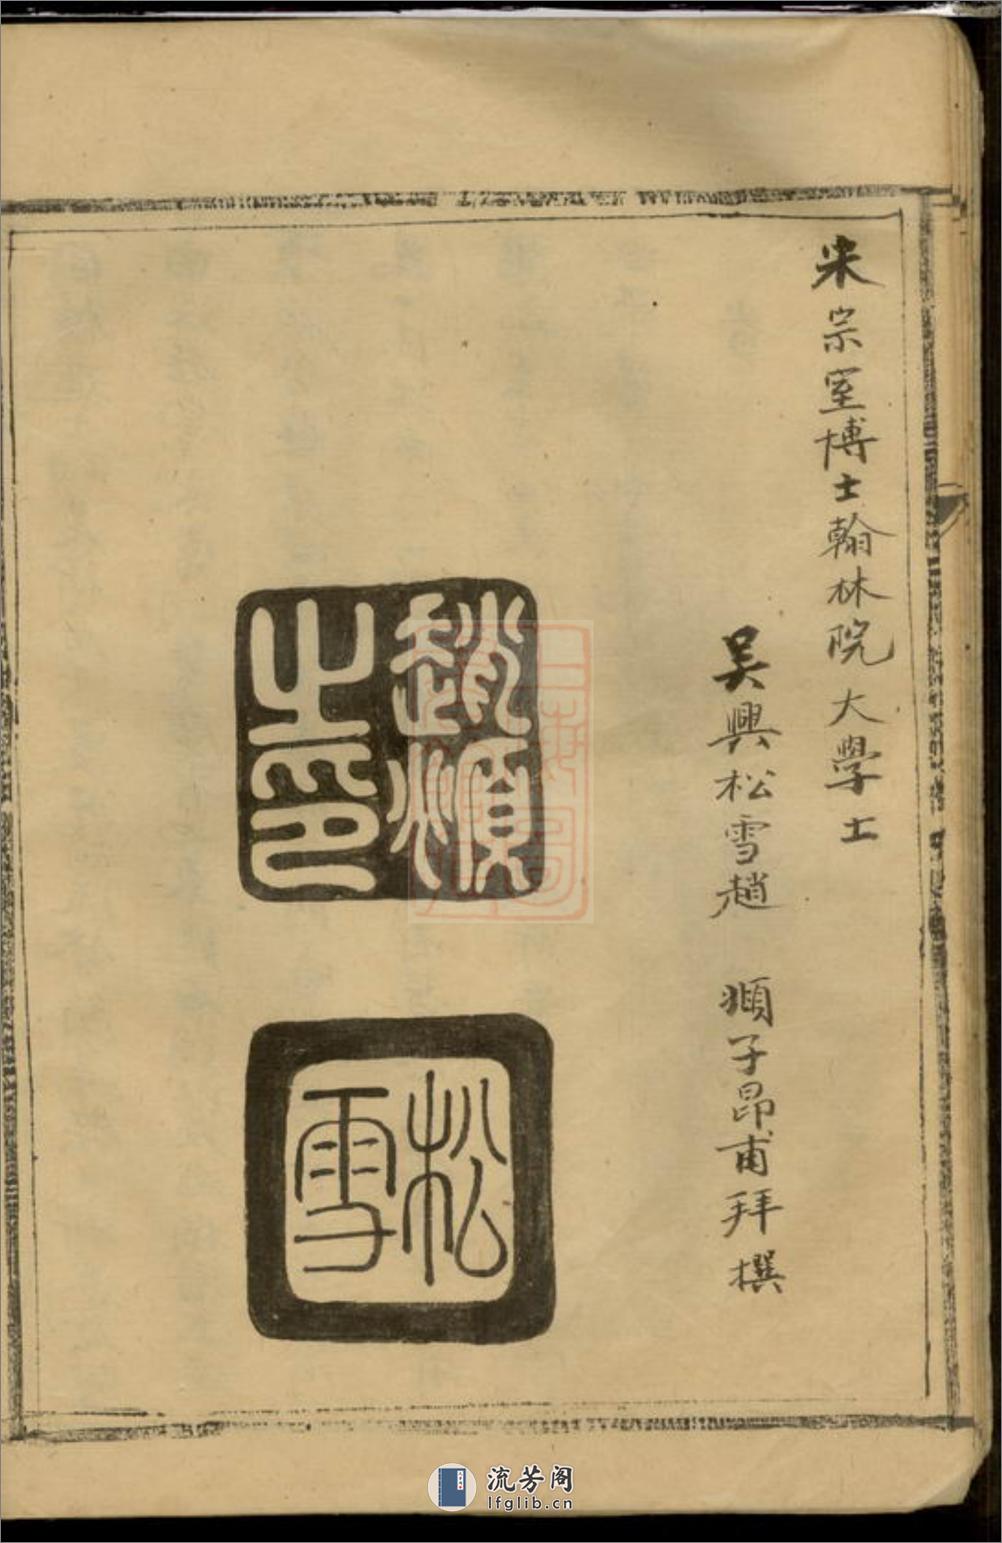 宋宗室博士翰林院大學士
吴興松雪趙 頫子昂甫拜撰
趙頫
之印
松
雪
流芳阁
lfglib.cn